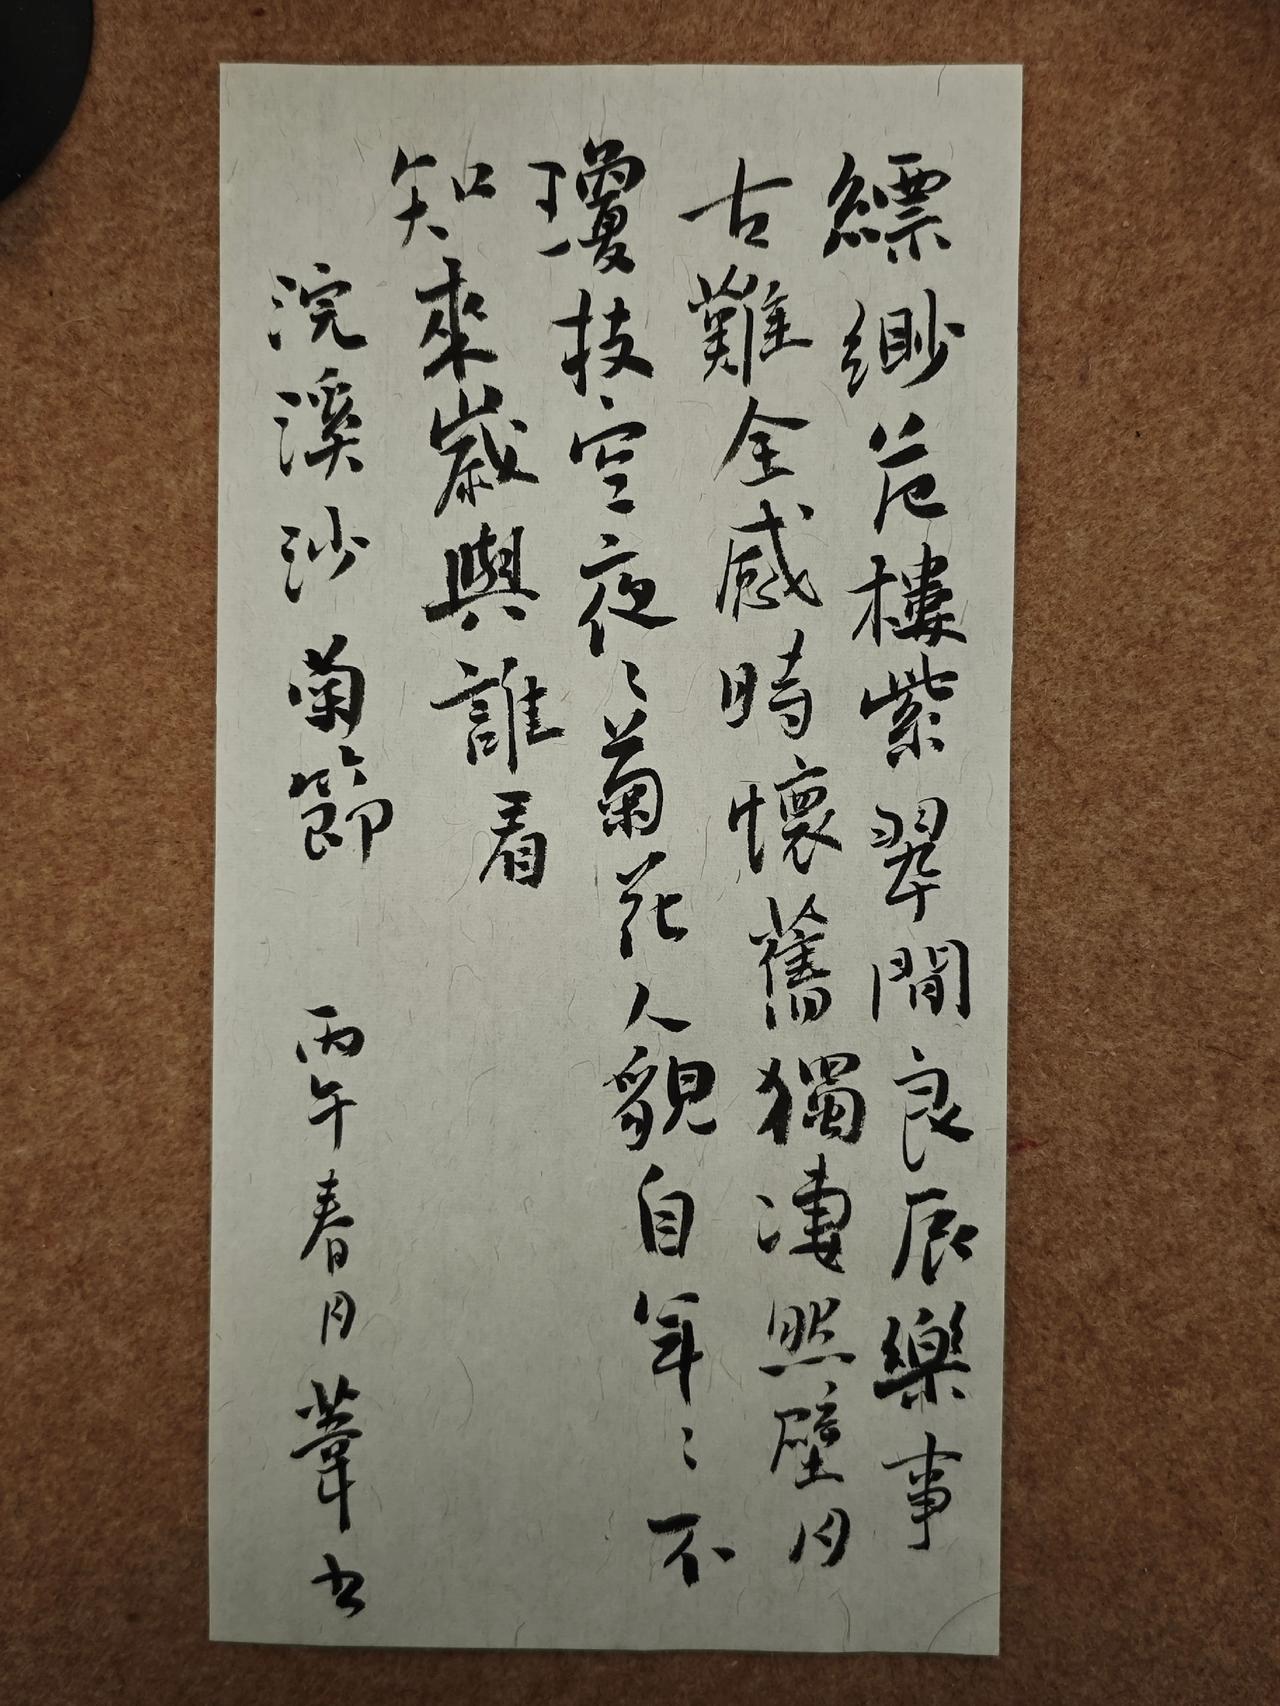 縹緲危樓紫翠間良辰樂事
古難全感時懷舊獨凄然璧月
瓊枝空夜〻菊花人貌自年〻不
知來歲與誰看
浣溪沙菊節 丙午春月葦书